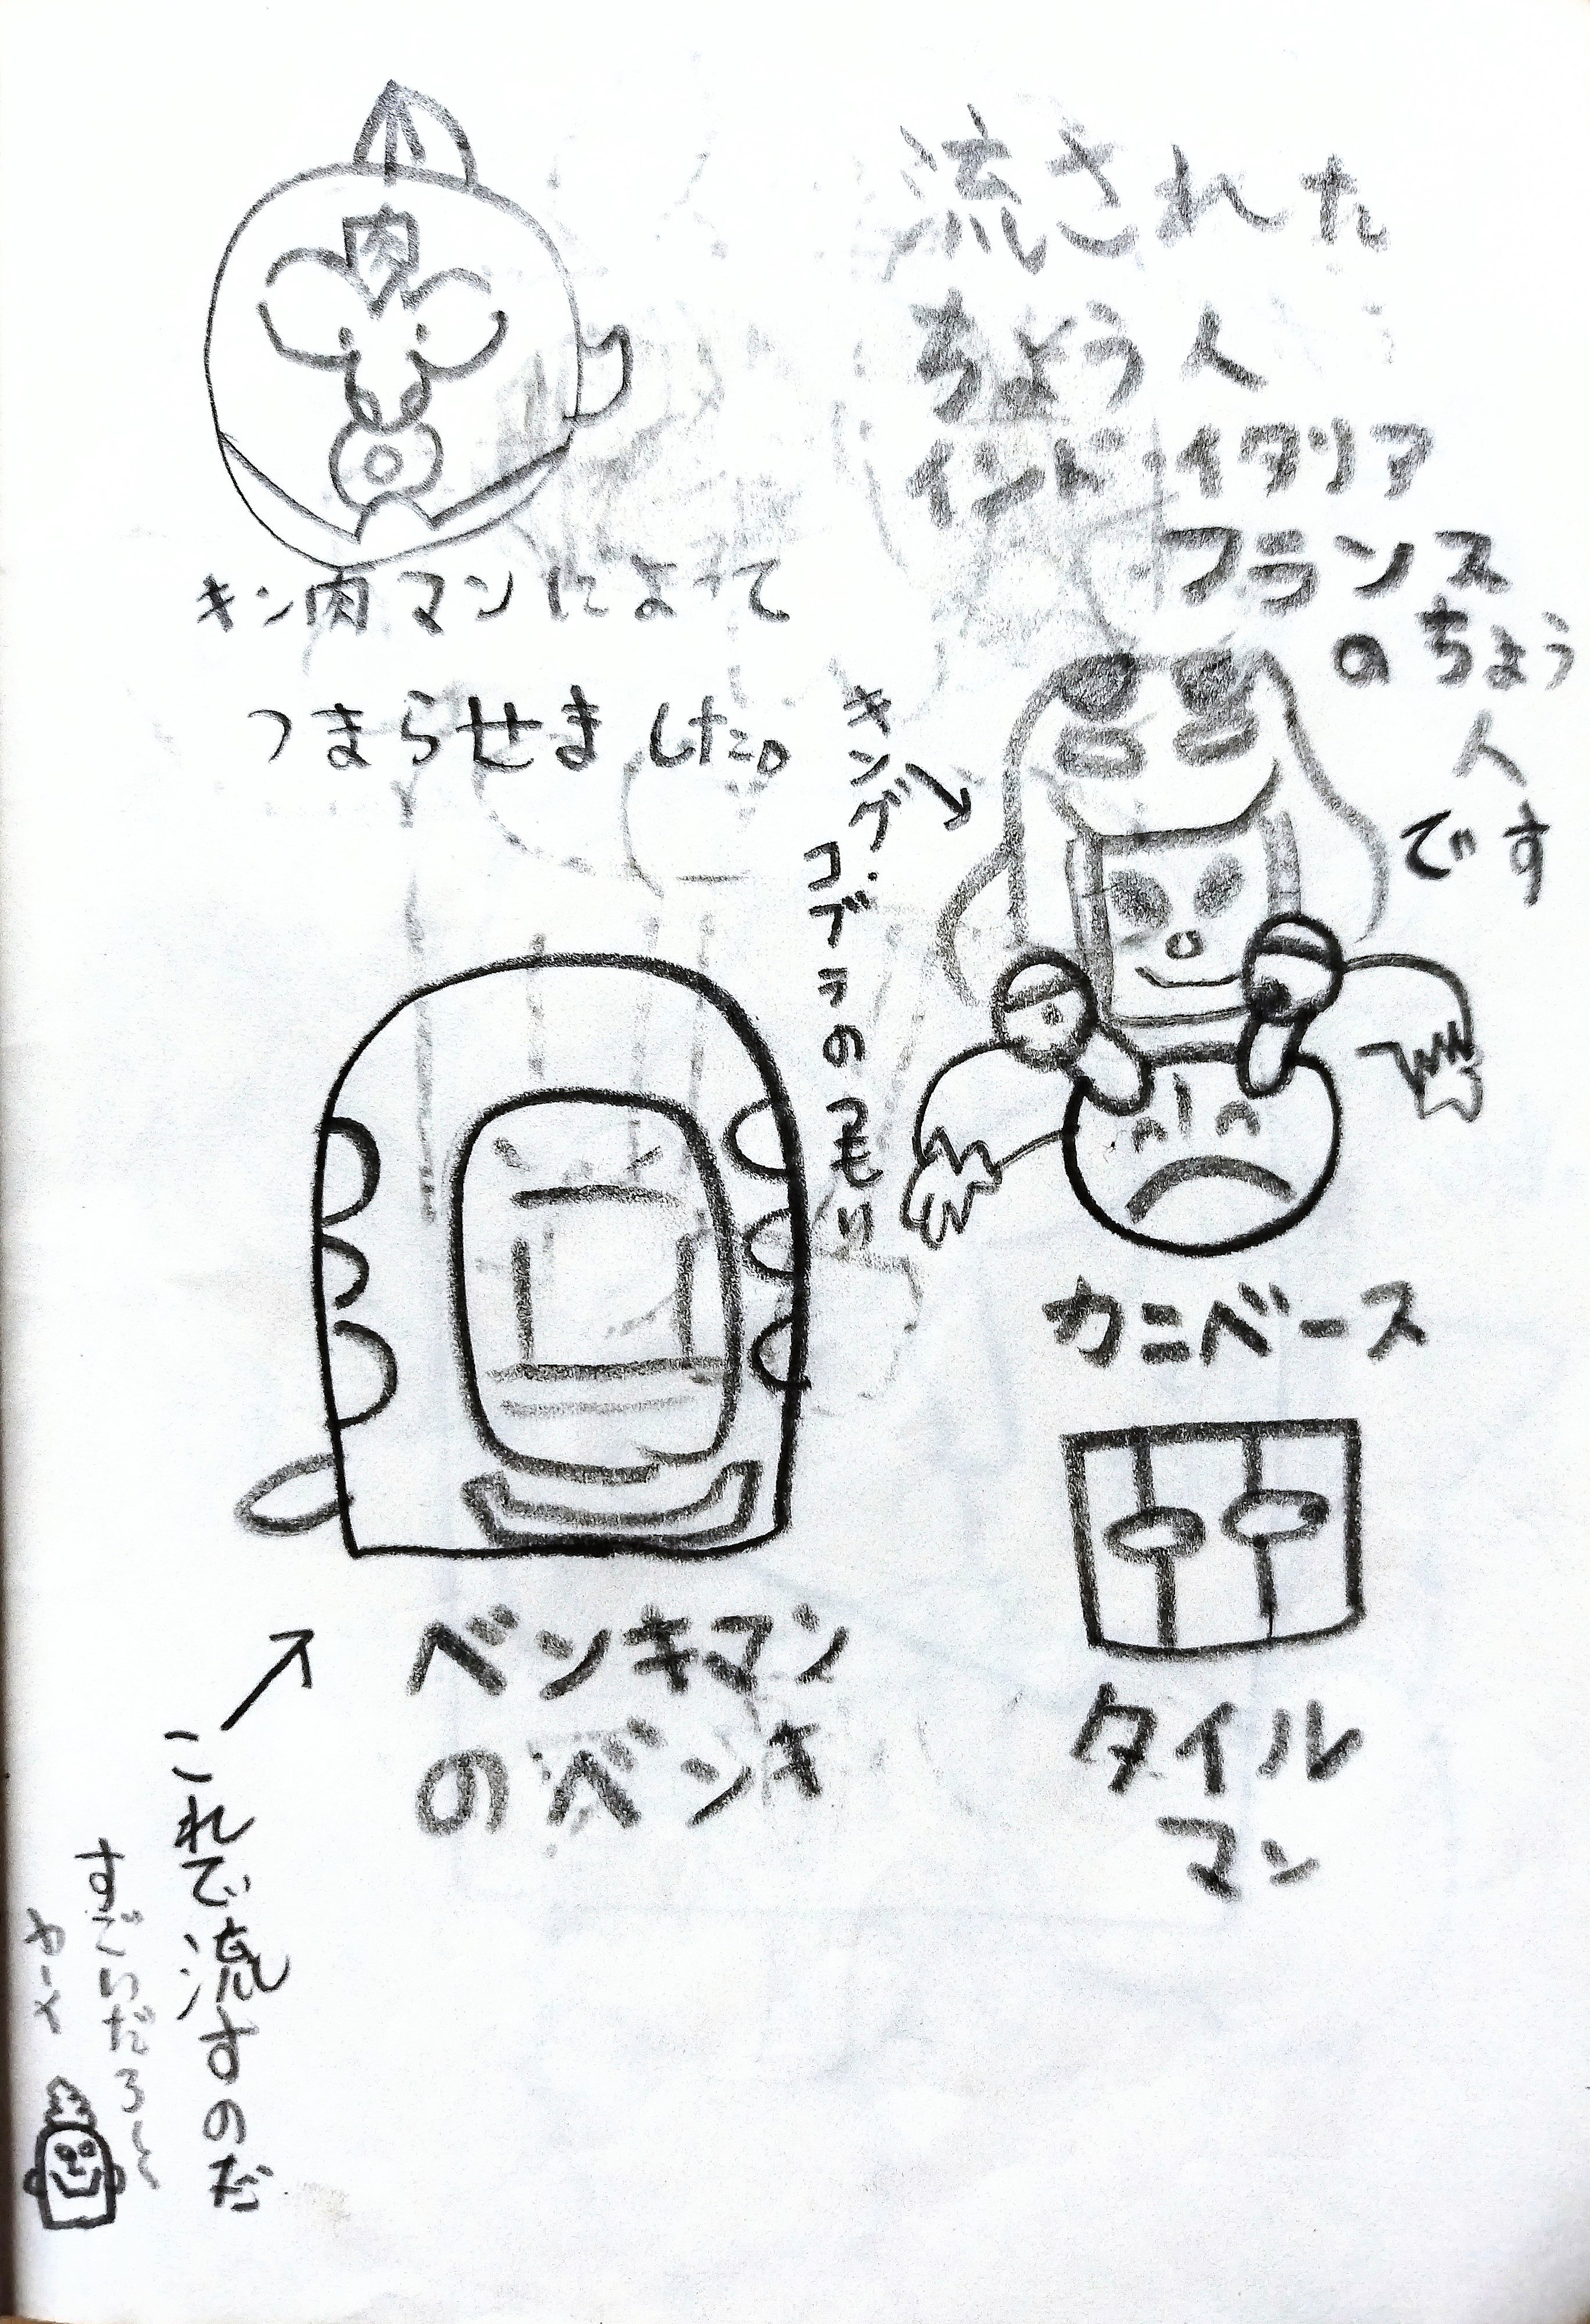 流された
ちょう人
インド・イタリア
フランス
のちょう
人
です
肉
キン肉マンによって
つまらせました。
キング
コブラのつもり
カニベース
ベンキマン
のベンキ
タイル
マン
これで流すのだ
すごいだろ〜